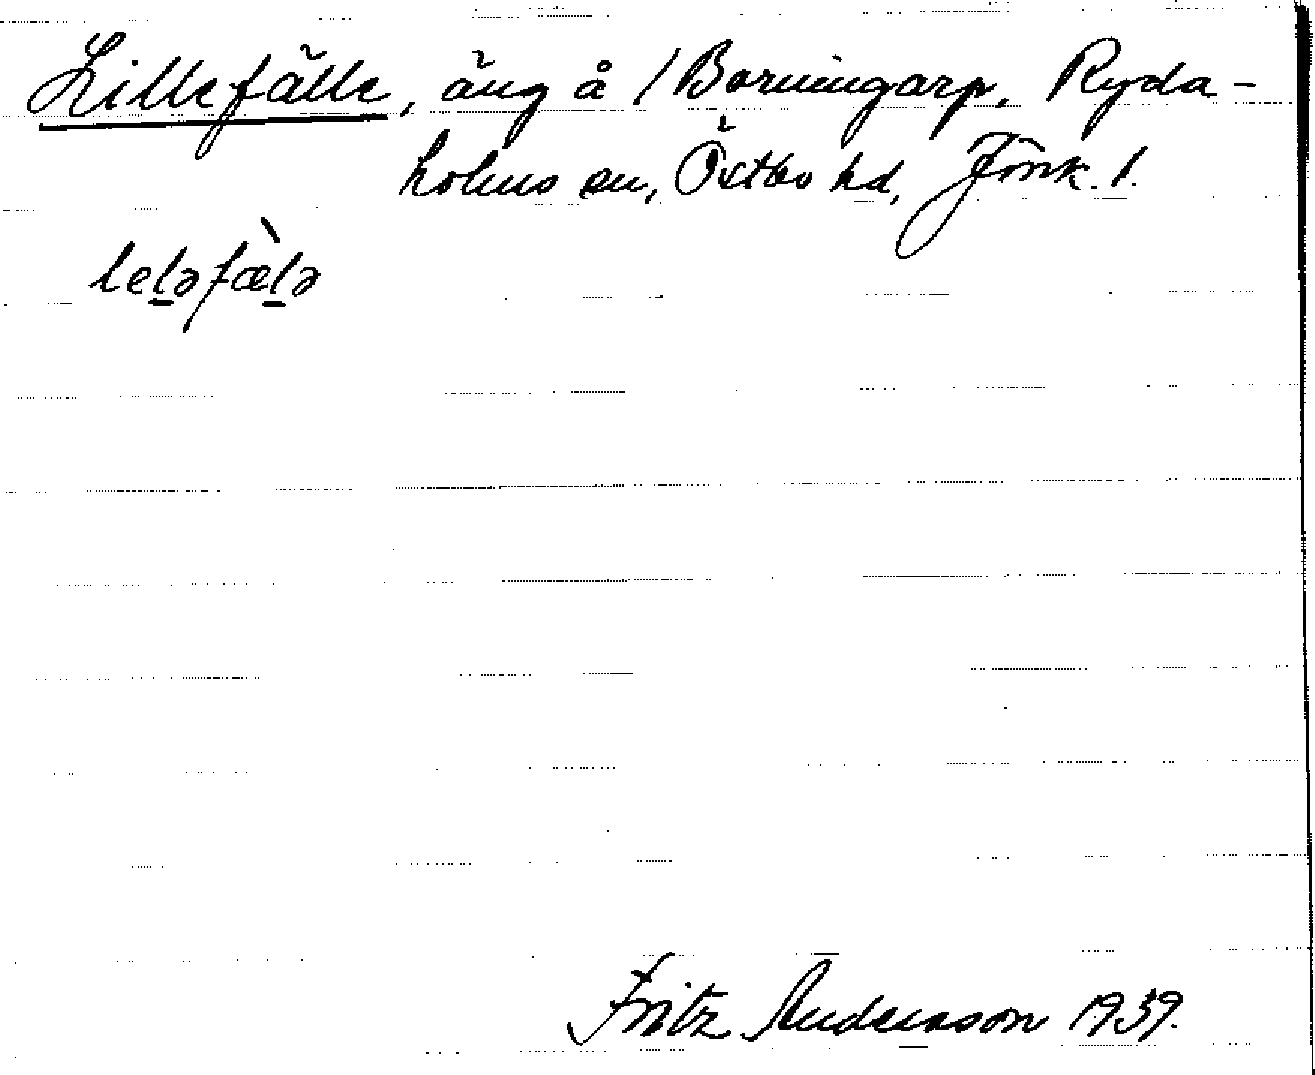 Lillefälle, äng å /Borningarp, Ryda-
holms sn, Östbo hd, Jönk. l.
leləfæ̀lə
Fritz Andersson 1939.